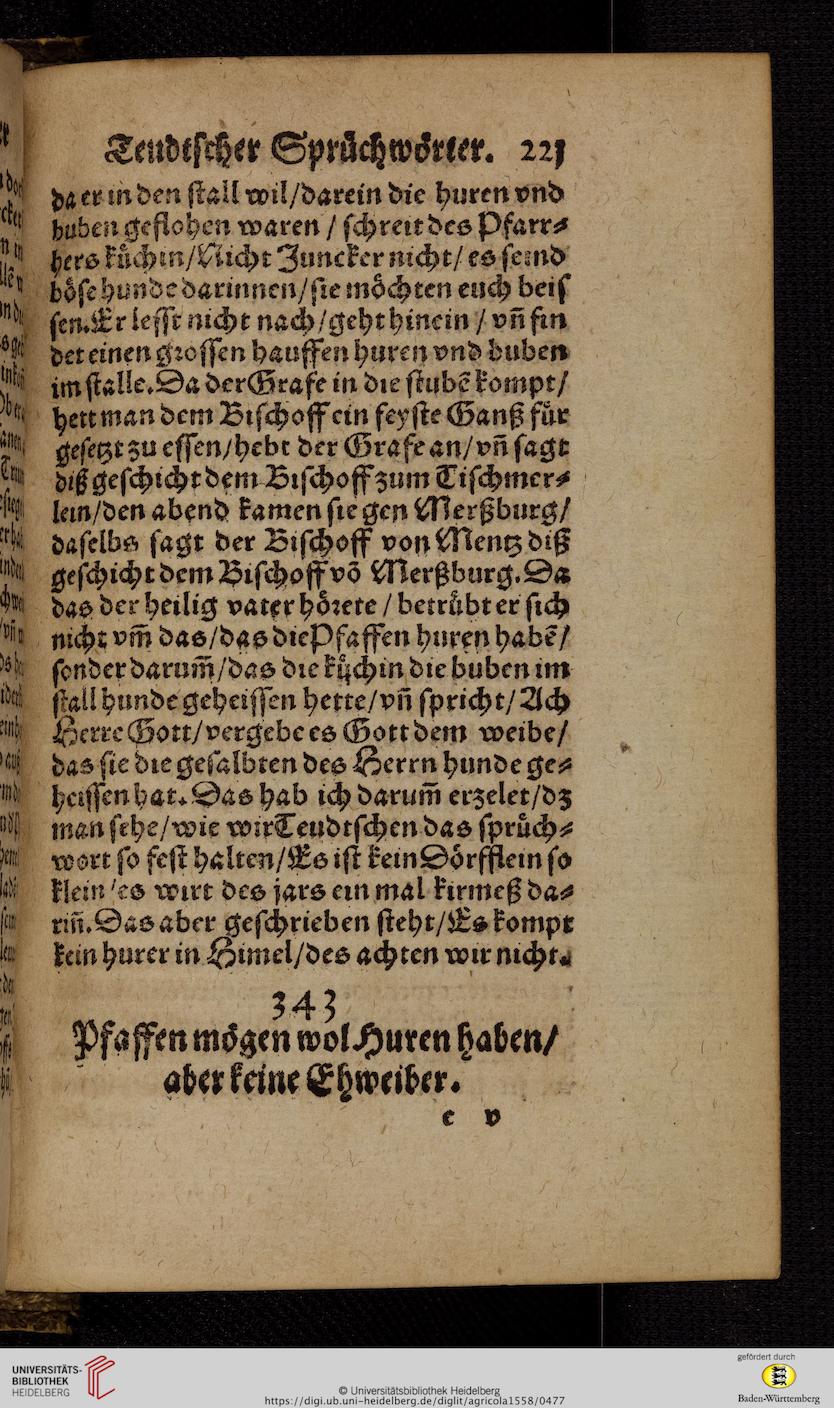 Teudtscher Sprüchwörter. 221
da er in den stall wil/darein die huren vnd
buben geflohen waren / schreit des Pfarr⸗
hers kuͤchin/Nicht Juncker nicht/ es seind
boͤse hunde darinnen/sie moͤchten euch beis
sen. Er lesst nicht nach/geht hinein / vñ fin
det einen grossen hauffen huren vnd buben
im stalle. Da der Grafe in die stubẽ kompt/
hett man dem Bischoff ein feyste Ganß fuͤr
gesetzt zu essen/hebt der Grafe an/vñ sagt
diß geschicht dem Bischoff zum Tischmer⸗
lein/den abend kamen sie gen Merßburg/
daselbs sagt der Bischoff von Mentz diß
geschicht dem Bischoff võ Merßburg. Da
das der heilig vater hoͤrete / betruͤbt er sich
nicht vm̃ das/das die Pfaffen huren habẽ/
sonder darum̃/das die kuͤchin die buben im
stall hunde geheissen hette/vñ spricht/Ach
Herre Gott/vergebe es Gott dem weibe/
das sie die gesalbten des Herrn hunde ge⸗
heissen hat. Das hab ich darum̃ erzelet/dz
man sehe/wie wir Teudtschen das spruͤch⸗
wort so fest halten/Es ist kein Doͤrfflein so
klein/es wirt des jars ein mal kirmeß da⸗
riñ. Das aber geschrieben steht/Es kompt
kein hurer in Himel/des achten wir nicht.
343
Pfaffen moͤgen wol Huren haben/
aber keine Ehweiber.
e v
UNIVERSITÄTS-
BIBLIOTHEK
HEIDELBERG
© Universitätsbibliothek Heidelberg
https://digi.ub.uni-heidelberg.de/diglit/agricola1558/0477
gefördert durch
Baden-Württemberg